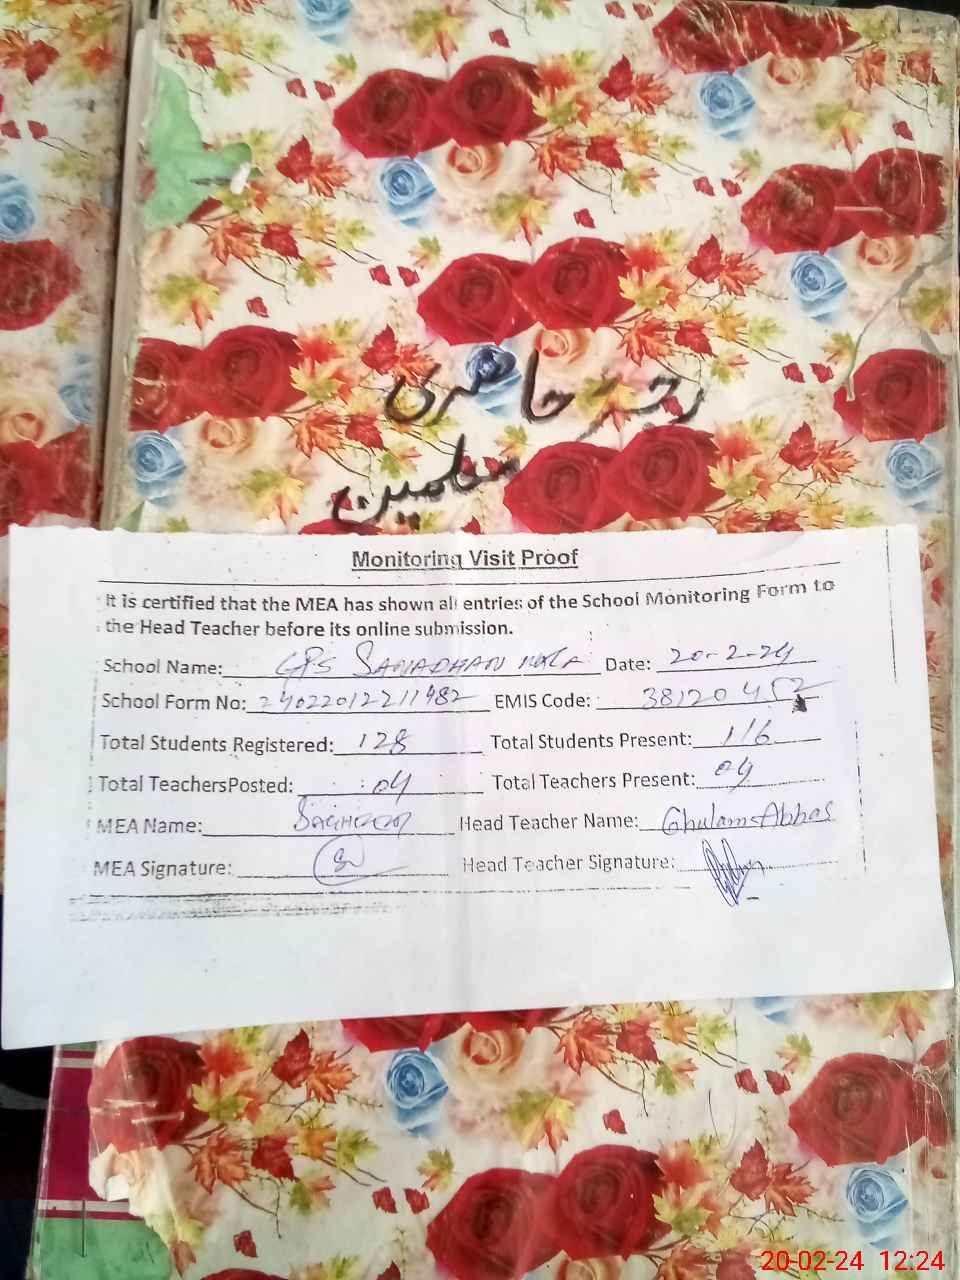 رجسٹر حاضری
معلمین
Monitoring Visit Proof
It is certified that the MEA has shown all entries of the School Monitoring Form to
the Head Teacher before its online submission.
School Name: GPS Date: 20-2-24
School Form No: 24022012211482 EMIS Code: 38120452
Total Students Registered: 128 Total Students Present: 116
Total TeachersPosted: 04 Total Teachers Present: 04
MEA Name: Head Teacher Name: Ghulam Abbas
MEA Signature: Head Teacher Signature:
20-02-24 12:24